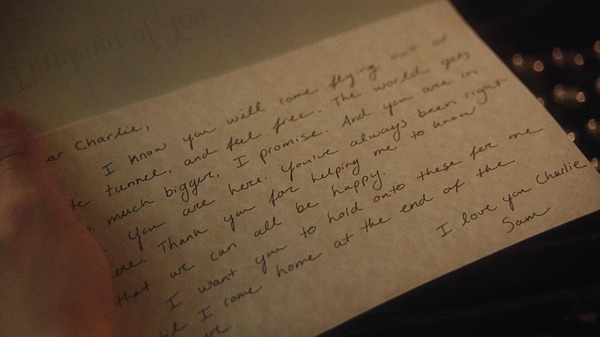 ar Charlie,
I know you will come flying out of
te tunnel, and feel free. The world gets
much bigger, I promise. And you are in
. You are here. You've always been right
ere. Thank you for helping me to know
that we can all be happy.
I want you to hold onto these for me
il I come home at the end of the
I love you Charlie
Sam